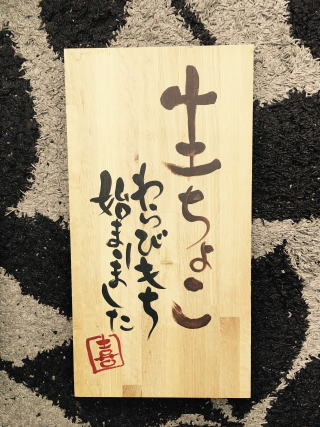 生ちょこ
わらびもち
始まりました
喜